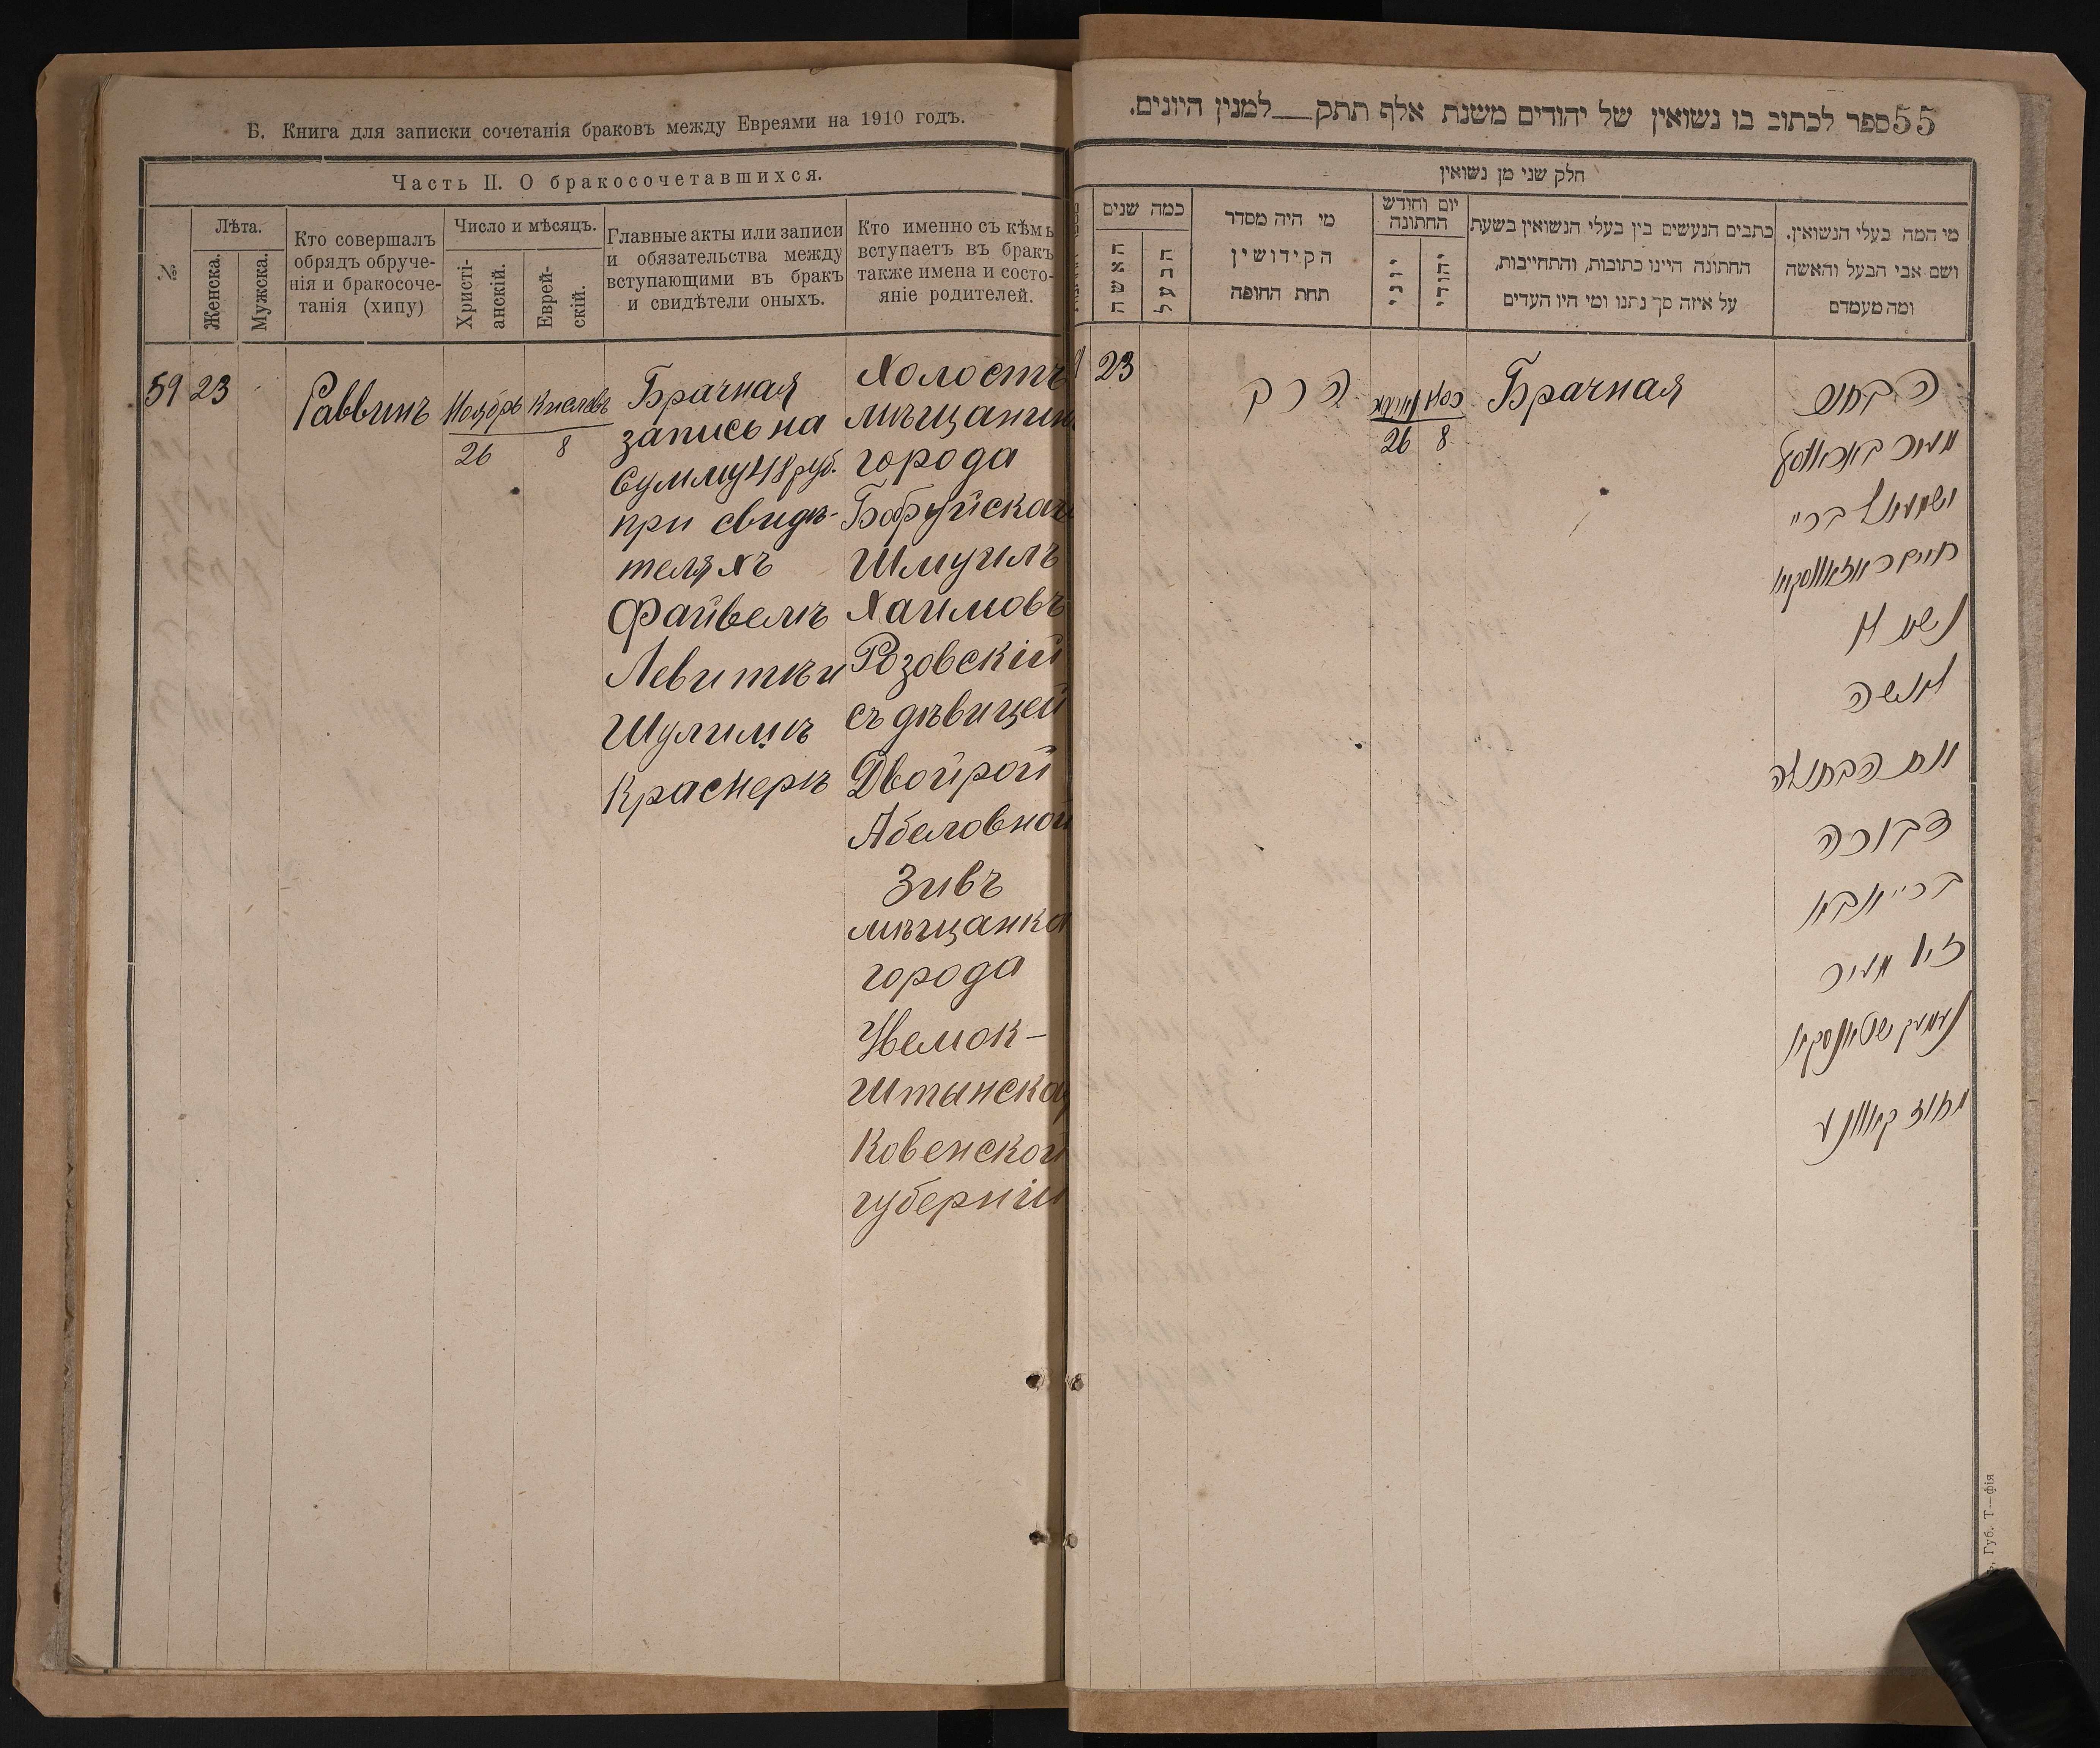 Б. Книга для записки сочетанія браковъ между Евреями на 1910 годъ.
Часть II. О бракосочетавшихся.
№
Лѣта.
Женска.
Мужска.
Кто совершалъ
обрядъ обруче-
нія и бракосоче-
танія (хипу)
Число и мѣсяцъ.
Христі-
анскій.
Еврей-
скій.
Главные акты или записи
и обязательства между
вступающими въ бракъ
и свидѣтели оныхъ.
Кто именно съ кѣмъ
вступаетъ въ бракъ
также имена и состо-
яніе родителей.
59
23
Раввинъ
Ноябрь
26
Кислевъ
8
Брачная
запись на
сумму 48 руб.
при свидѣ-
теляхъ
Файвелъ
Левитъ и
Шулимъ
Краснеръ
Холостъ
мѣщанинъ
города
Бобруйска
Шмуилъ
Хаимовъ
Розовскій
съ дѣвицей
Двойрой
Абеловной
Зивъ
мѣщанка
города
Штынска
Ковенской
губерніи
55 ספר לכתוב בו נשואין של יהודים משנת אלף תתק__למנין היונים.
חלק שני מן נשואין
מי המה בעלי הנשואין.
ושם אבי הבעל והאשה
ומה מעמדם
כתבים הנעשים בין בעלי הנשואין בשעת
החתונה היינו כתובות, והתחייבות,
על איזה סך נתנו ומי היו העדים
יום וחודש
החתונה
יהודי
יוני
מי היה מסדר
הקידושין
תחת החופה
כמה שנים
הבעל
האשה
הבחור
חיים ראזאווסקי
נשא
לאשה
את הבתולה
דבורה
זיו
Брачная
כסלו
8
26
הרב
23
, Губ. Т—фія